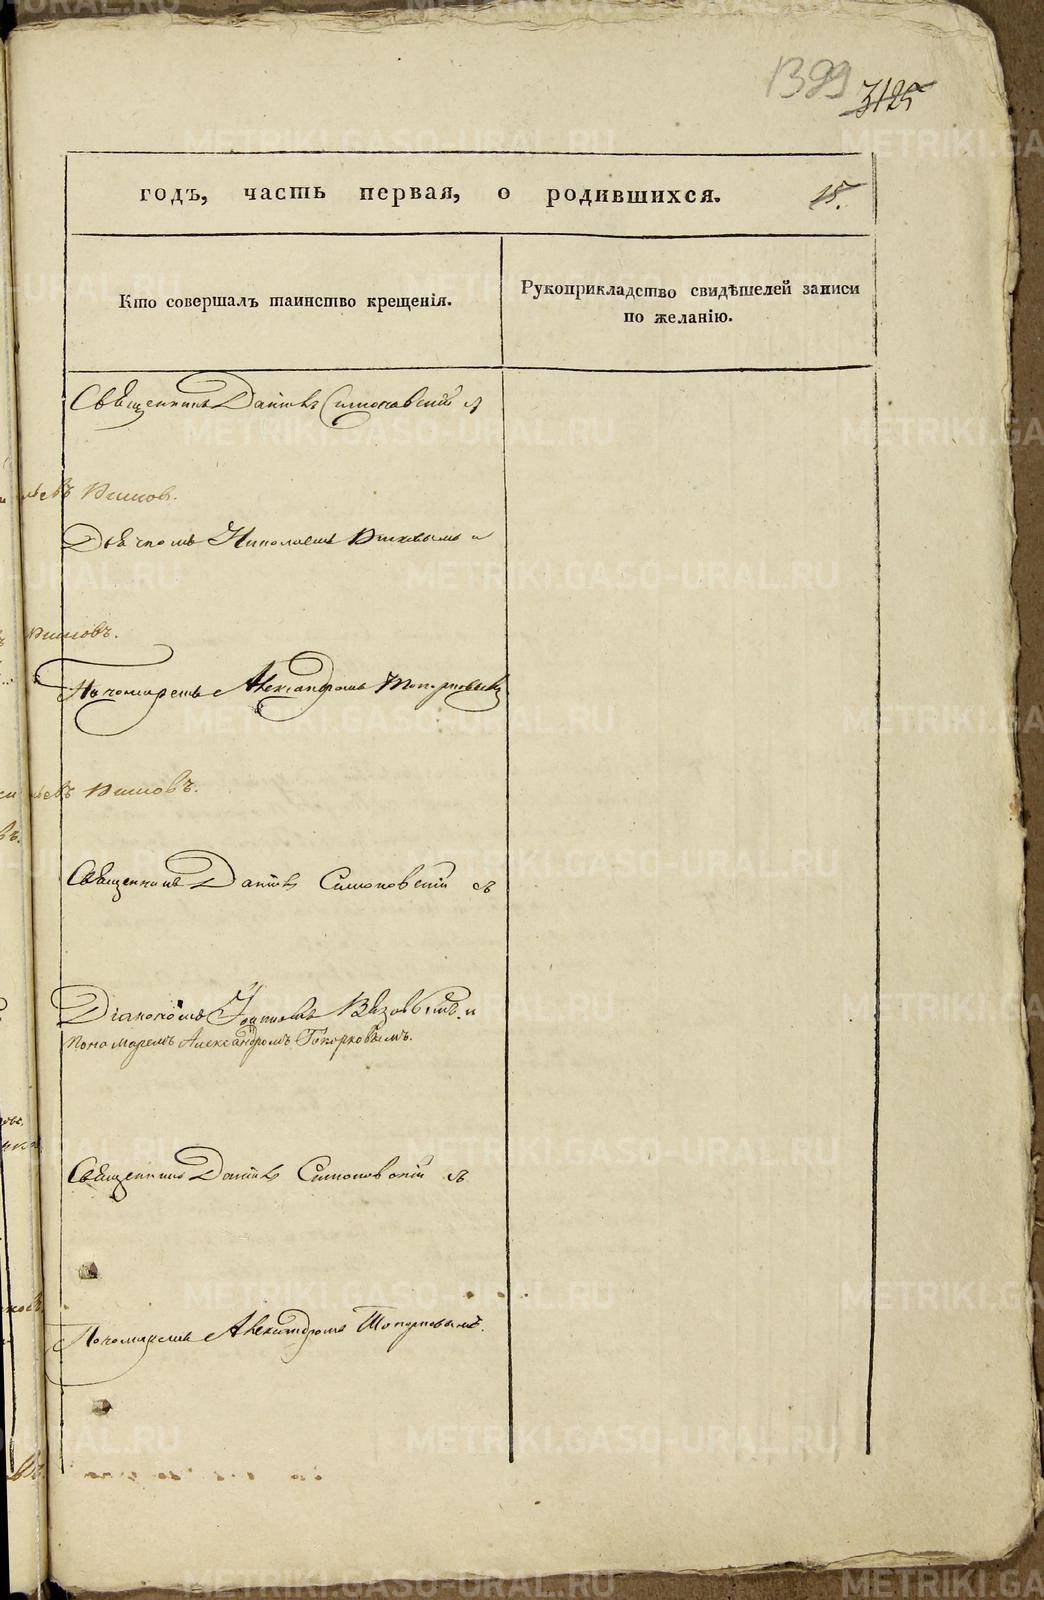 1399 3125
годъ, часть первая, о родившихся. 15.
Кто совершалъ таинство крещенія.
Рукоприкладство свидѣтелей записи
по желанію.
Священникъ Даніилъ Симоновскій съ
Дьячкомъ Николаемъ и
Пономаремъ Александромъ Топорковымъ
Священникъ Даніилъ Симоновскій съ
Діакономъ и
Пономаремъ Александромъ Топорковымъ.
Священникъ Даніилъ Симоновскій съ
Пономаремъ Александромъ Топорковымъ.
METRIKI.GASO-URAL.RU